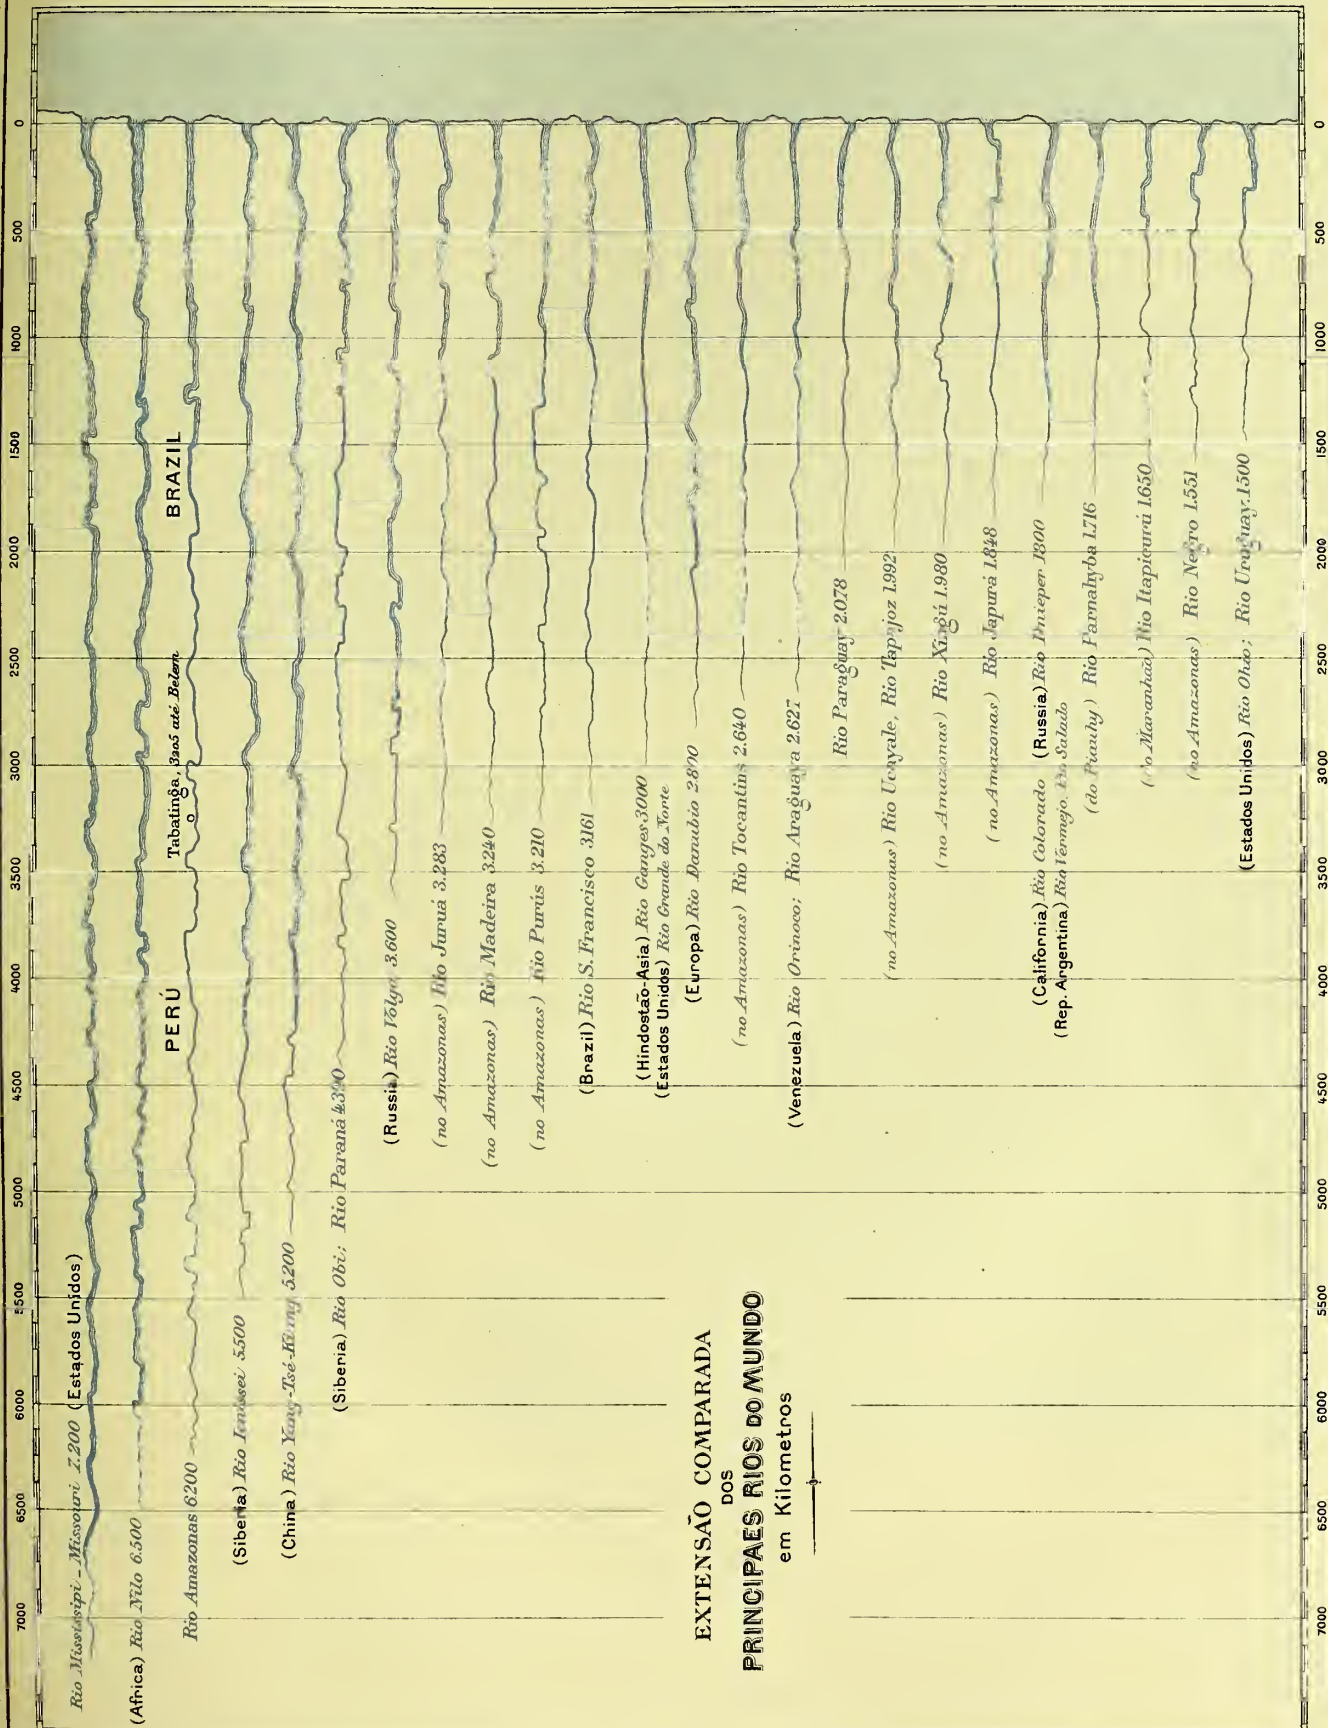 EXTENSÃO COMPARADA
DOS
PRINCIPAES RIOS DO MUNDO
em Kilometros
7000 6500 6000 5500 5000 4500 4000 3500 3000 2500 2000 1500 1000 500 0
Rio Mississipi-Missouri 7.200 (Estados Unidos)
(Africa) Rio Nilo 6.500
Rio Amazonas 6200
PERÚ
Tabatinga, 3205 até Belem
BRAZIL
(Siberia) Rio Ienissei 5.500
(China) Rio Yang-Tsé-Kiang 5.200
(Siberia) Rio Obi; Rio Paraná 4.390
(Russia) Rio Volga 3.600
(no Amazonas) Rio Juruá 3.283
(no Amazonas) Rio Madeira 3.240
(no Amazonas) Rio Purús 3.210
(Brazil) Rio S. Francisco 3.161
(Hindostão-Asia) Rio Ganges 3.000
(Estados Unidos) Rio Grande do Norte
(Europa) Rio Danubio 2.800
(no Amazonas) Rio Tocantins 2.640
(Venezuela) Rio Orinoco; Rio Araguaya 2.627
Rio Paraguay 2.078
(no Amazonas) Rio Ucayale, Rio Tapajoz 1.992
(no Amazonas) Rio Xingú 1.980
(no Amazonas) Rio Japurá 1.848
(California) Rio Colorado (Russia) Rio Dnieper 1800
(Rep. Argentina) Rio Vermejo, Rio Salado
(do Piauhy) Rio Parnahyba 1.716
(do Maranhão) Rio Itapicurú 1.650
(no Amazonas) Rio Negro 1.551
(Estados Unidos) Rio Ohio; Rio Uruguay. 1500
7000 6500 6000 5500 5000 4500 4000 3500 3000 2500 2000 1500 1000 500 0